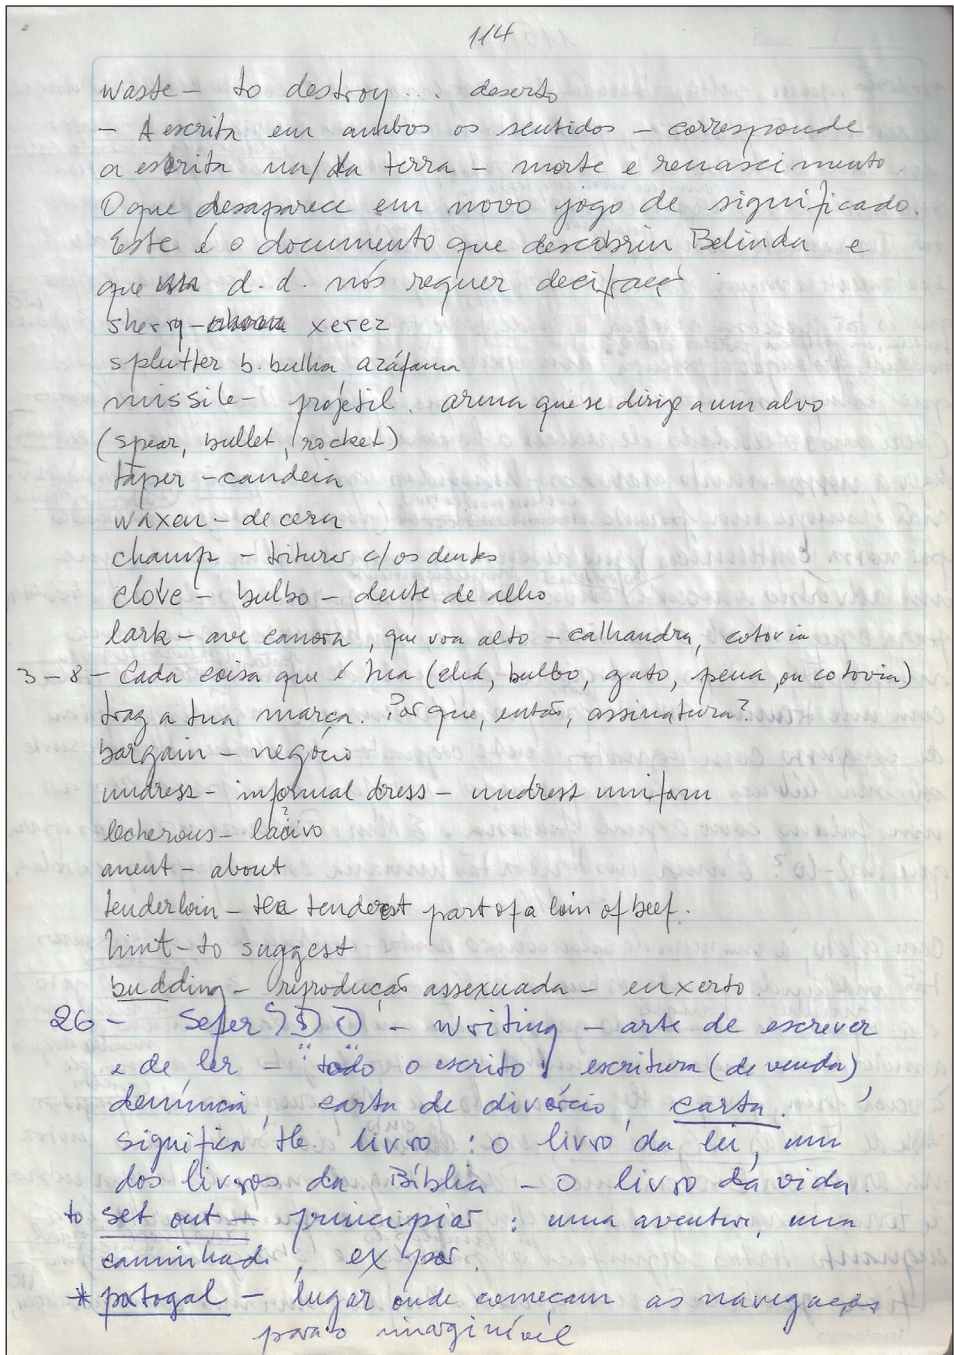 114
waste - to destroy... deserto
- A escrita em ambos os sentidos - corresponde
a escrita na/da terra - morte e renascimento.
O que desaparece em novo jogo de significado.
Este é o documento que descobriu Belinda e
que d. d. nós requer decifraçã
sherry - xerez
splutter b. bulha azáfama
missile - projétil. arma que se dirige a um alvo
(spear, bullet, rocket)
taper - candeia
waxen - de cera
champ - triturar c/ os dentes
clove - bulbo - dente de alho
lark - ave canora, que voa alto - calhandra, cotovia
3 - 8 - Cada coisa que é tua (chá, bulbo, gato, pena, ou cotovia)
traz a tua marca. Por que, então, assinatura?
bargain - negócio
undress - informal dress - undress uniform
lecherous - lacivo
?
anent - about
tenderloin - the tenderest part of a loin of beef.
hint - to suggest
budding - reprodução assexuada - enxerto.
26 - Sefer ספר - writing - arte de escrever
e de ler - todo o escrito: escritura (de venda),
denúncia, carta de divórcio, carta.
significa tb. livro: o livro da lei, um
dos livros da Bíblia - o livro da vida.
to set out - principiar: uma aventura, uma
caminhada, ex por.
* portogal - lugar onde começam as navegações
para o imaginível